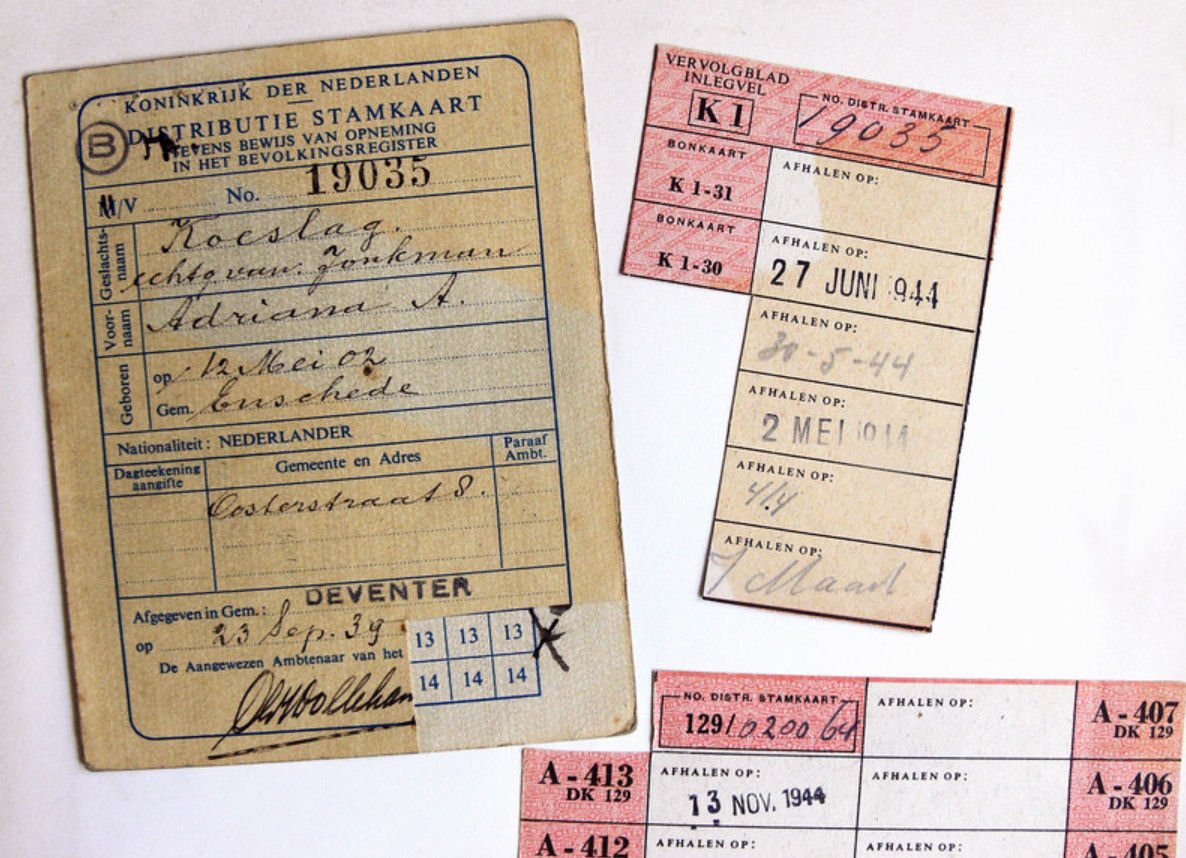 KONINKRIJK DER NEDERLANDEN
DISTRIBUTIE STAMKAART
TEVENS BEWIJS VAN OPNEMING
IN HET BEVOLKINGSREGISTER
B
M/V No. 19035
Geslachts-
naam
Koeslag.
echtg van: Jonkman
Voor-
naam
Adriana A.
Geboren
op 12 Mei 02
Gem. Enschede
Nationaliteit: NEDERLANDER
Dagteekening
aangifte
Gemeente en Adres
Paraaf
Ambt.
Oosterstraat 8.
Afgegeven in Gem.: DEVENTER
op 23 Sep. 39
De Aangewezen Ambtenaar van het
13 13 13
14 14 14
VERVOLGBLAD
INLEGVEL
K 1
NO. DISTR. STAMKAART
19035
BONKAART
K 1-31
AFHALEN OP:
BONKAART
K 1-30
AFHALEN OP:
27 JUNI 1944
AFHALEN OP:
30-5-44
AFHALEN OP:
2 MEI 1944
AFHALEN OP:
4/4
AFHALEN OP:
7 Maart
NO. DISTR. STAMKAART
129/020064
AFHALEN OP:
A - 407
DK 129
A - 413
DK 129
AFHALEN OP:
13 NOV. 1944
AFHALEN OP:
A - 406
DK 129
A - 412
AFHALEN OP:
AFHALEN OP:
A - 405